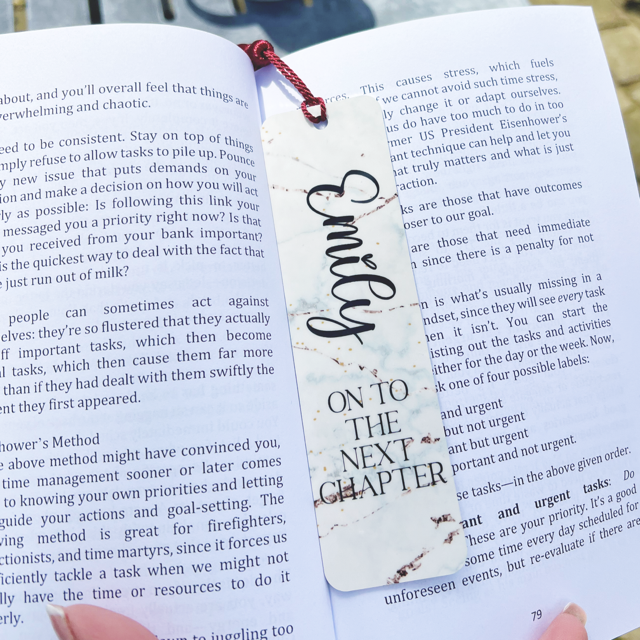 about, and you'll overall feel that things are
overwhelming and chaotic.
need to be consistent. Stay on top of things
simply refuse to allow tasks to pile up. Pounce
new issue that puts demands on your
and make a decision on how you will act
as possible: Is following this link your
messaged you a priority right now? Is that
you received from your bank important?
is the quickest way to deal with the fact that
just run out of milk?
people can sometimes act against
elves: they're so flustered that they actually
important tasks, which then become
tasks, which then cause them far more
than if they had dealt with them swiftly the
they first appeared.
hower's Method
above method might have convinced you,
time management sooner or later comes
to knowing your own priorities and letting
guide your actions and goal-setting. The
ving method is great for firefighters,
ctionists, and time martyrs, since it forces us
ficiently tackle a task when we might not
have the time or resources to do it
erly.
to juggling too
Emily
ON TO
THE
NEXT
CHAPTER
This causes stress, which fuels
we cannot avoid such time stress,
change it or adapt ourselves.
us do have too much to do in too
mer US President Eisenhower's
ant technique can help and let you
at truly matters and what is just
action.
ks are those that have outcomes
oser to our goal.
are those that need immediate
since there is a penalty for not
n is what's usually missing in a
ndset, since they will see every task
en it isn't. You can start the
isting out the tasks and activities
ither for the day or the week. Now,
k one of four possible labels:
and urgent
but not urgent
ant but urgent
portant and not urgent.
se tasks—in the above given order.
ant and urgent tasks: Do
These are your priority. It's a good
some time every day scheduled for
unforeseen events, but re-evaluate if there are
79